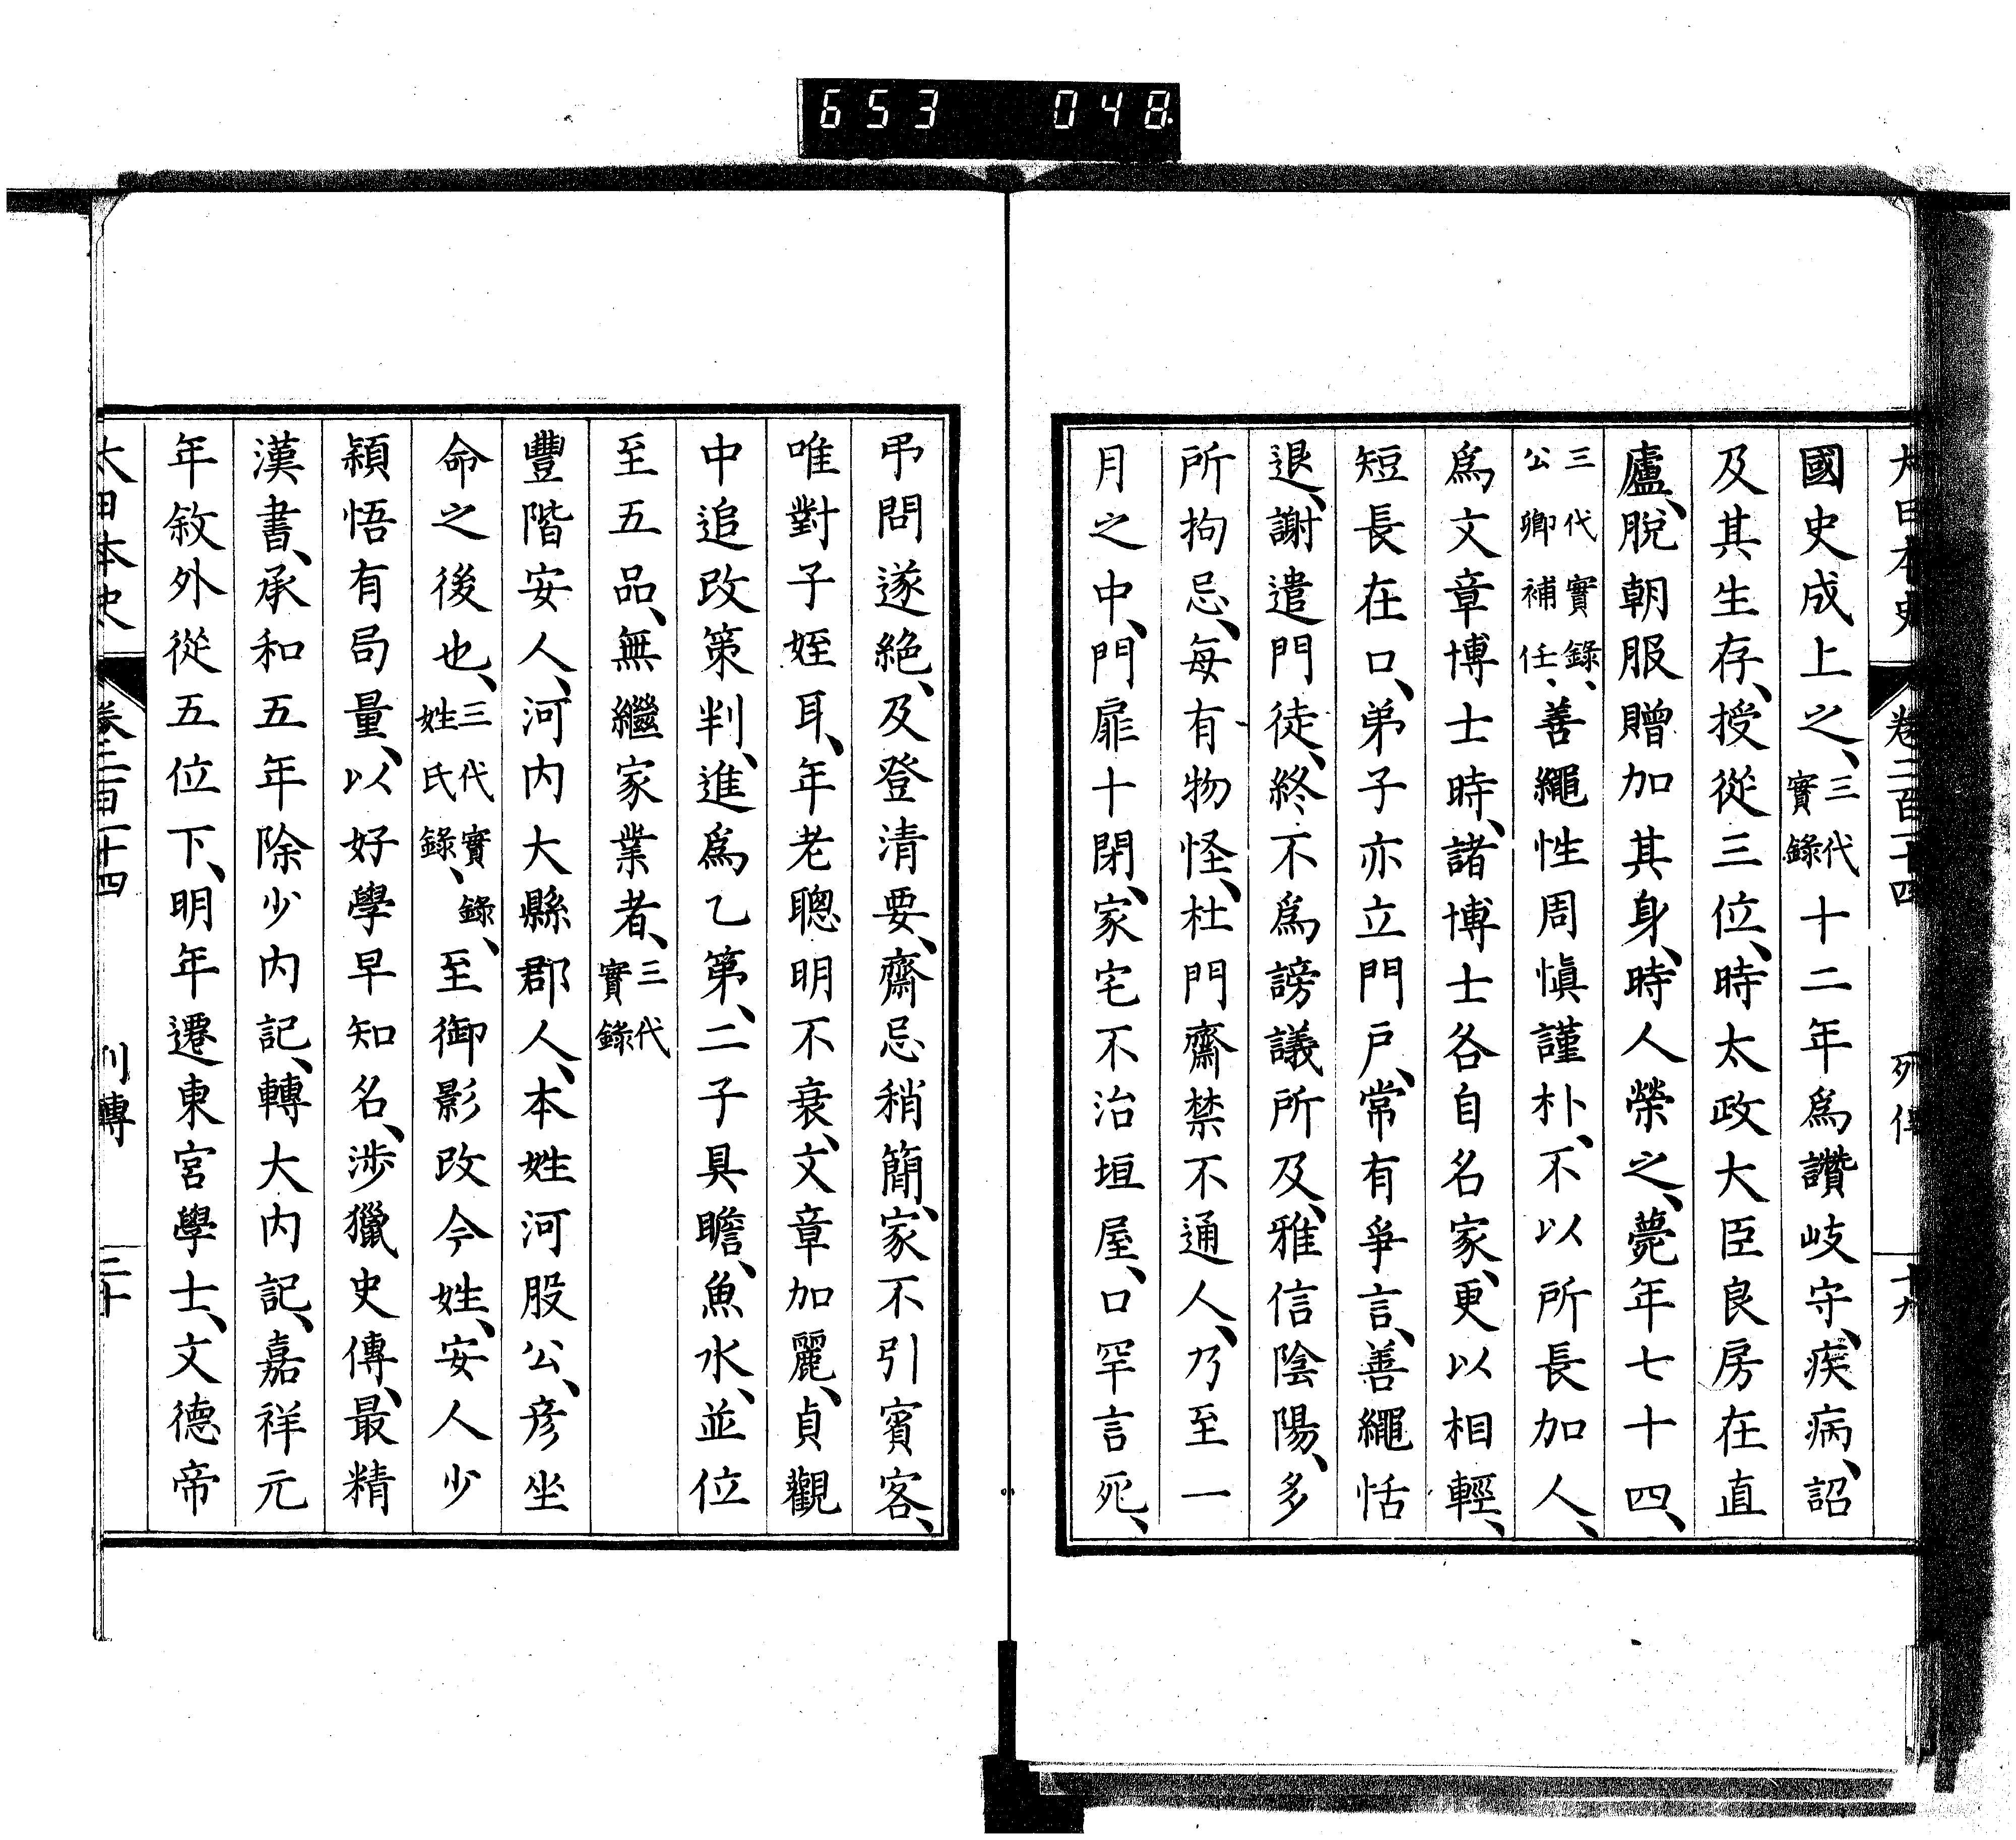 653 048
大日本史 卷二百十四 列傳 十九
國史成上之、三代實錄十二年爲讚岐守、疾病、詔
及其生存、授從三位、時太政大臣良房在直
廬、脫朝服贈加其身、時人榮之、薨年七十四、
三代實錄、公卿補任、善繩性周愼謹朴、不以所長加人、
爲文章博士時、諸博士各自名家、更以相輕、
短長在口、弟子亦立門戶、常有爭言、善繩恬
退、謝遣門徒、終不爲謗議所及、雅信陰陽、多
所拘忌、每有物怪、杜門齋禁不通人、乃至一
月之中、門扉十閉、家宅不治垣屋、口罕言死、
弔問遂絕、及登清要、齋忌稍簡、家不引賓客、
唯對子姪耳、年老聰明不衰、文章加麗、貞觀
中追改策判、進爲乙第、二子具瞻、魚水、並位
至五品、無繼家業者、三代實錄
豐階安人、河內大縣郡人、本姓河股公、彥坐
命之後也、三代實錄、姓氏錄、至御影改今姓、安人少
穎悟有局量、以好學早知名、涉獵史傳、最精
漢書、承和五年除少內記、轉大內記、嘉祥元
年敘外從五位下、明年遷東宮學士、文德帝
大日本史 卷二百十四 列傳 二十